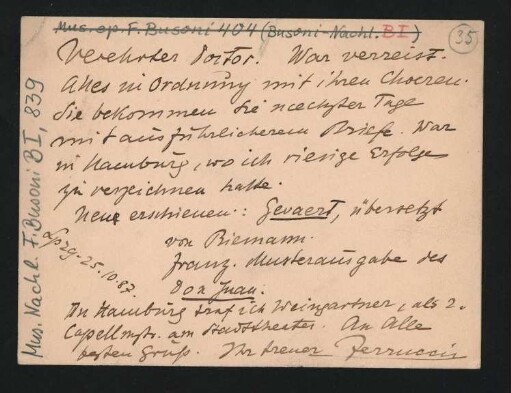 Mus. ep. F. Busoni 404 (Busoni-Nachl. BI)
35
Verehrter Doctor. War verreist.
Alles in Ordnung mit ihren Choeren.
Sie bekommen sie naechster Tage
mit ausführlicherem Briefe. War
in Hamburg, wo ich riesige Erfolge
zu verzeichnen hatte.
Neu erschienen: Gevaert, übersetzt
von Riemann.
Franz. Musterausgabe des
Don Juan.
In Hamburg traf ich Weingartner, als 2.
Capellmstr. am Stadttheater. An Alle
besten Gruß. Ihr treuer Ferruccio
Lpzg. 25.10.87.
Mus. Nachl. F. Busoni BI, 839